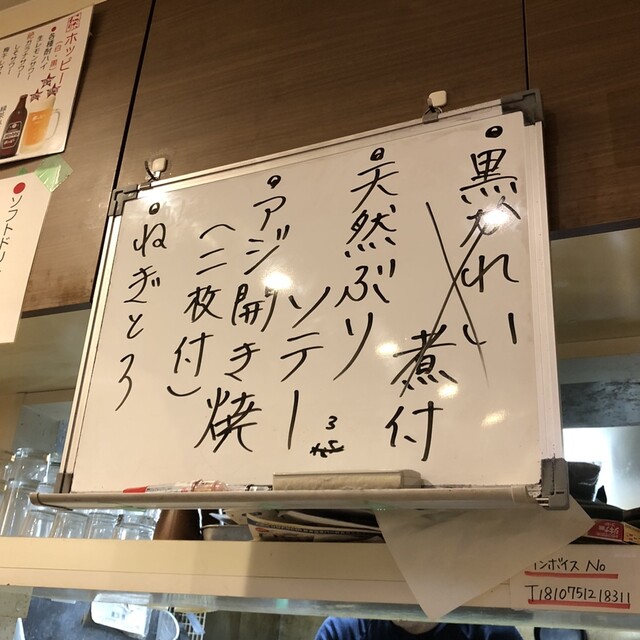 • 黒かれい
煮付
• 天然ぶり
ソテー
• アジ開き焼
(二枚付)
• ねぎとろ
ホッピー
ソフトドリ
インボイス No
T1810751218311